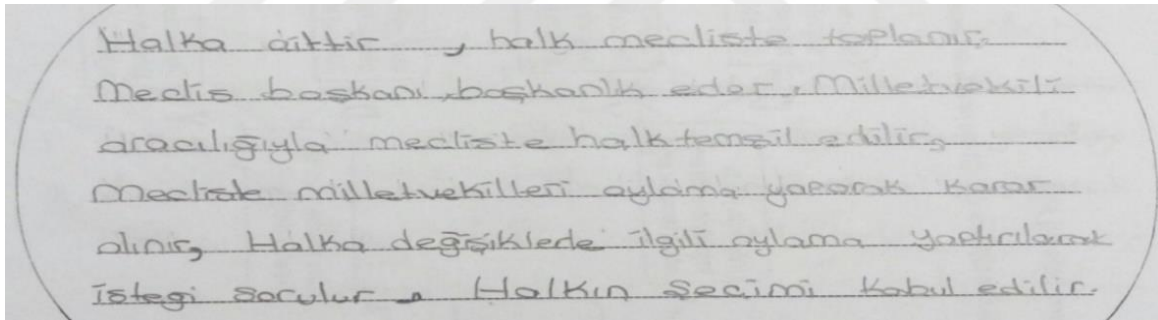 Halka aittir, halk mecliste toplanır.
Meclis başkanı, başkanlık eder. Milletvekili
aracılığıyla mecliste halk temsil edilir,
Mecliste milletvekilleri oylama yaparak karar
alınır, Halka değişiklede ilgili oylama yaptırılarak
isteği sorulur. Halkın seçimi kabul edilir.